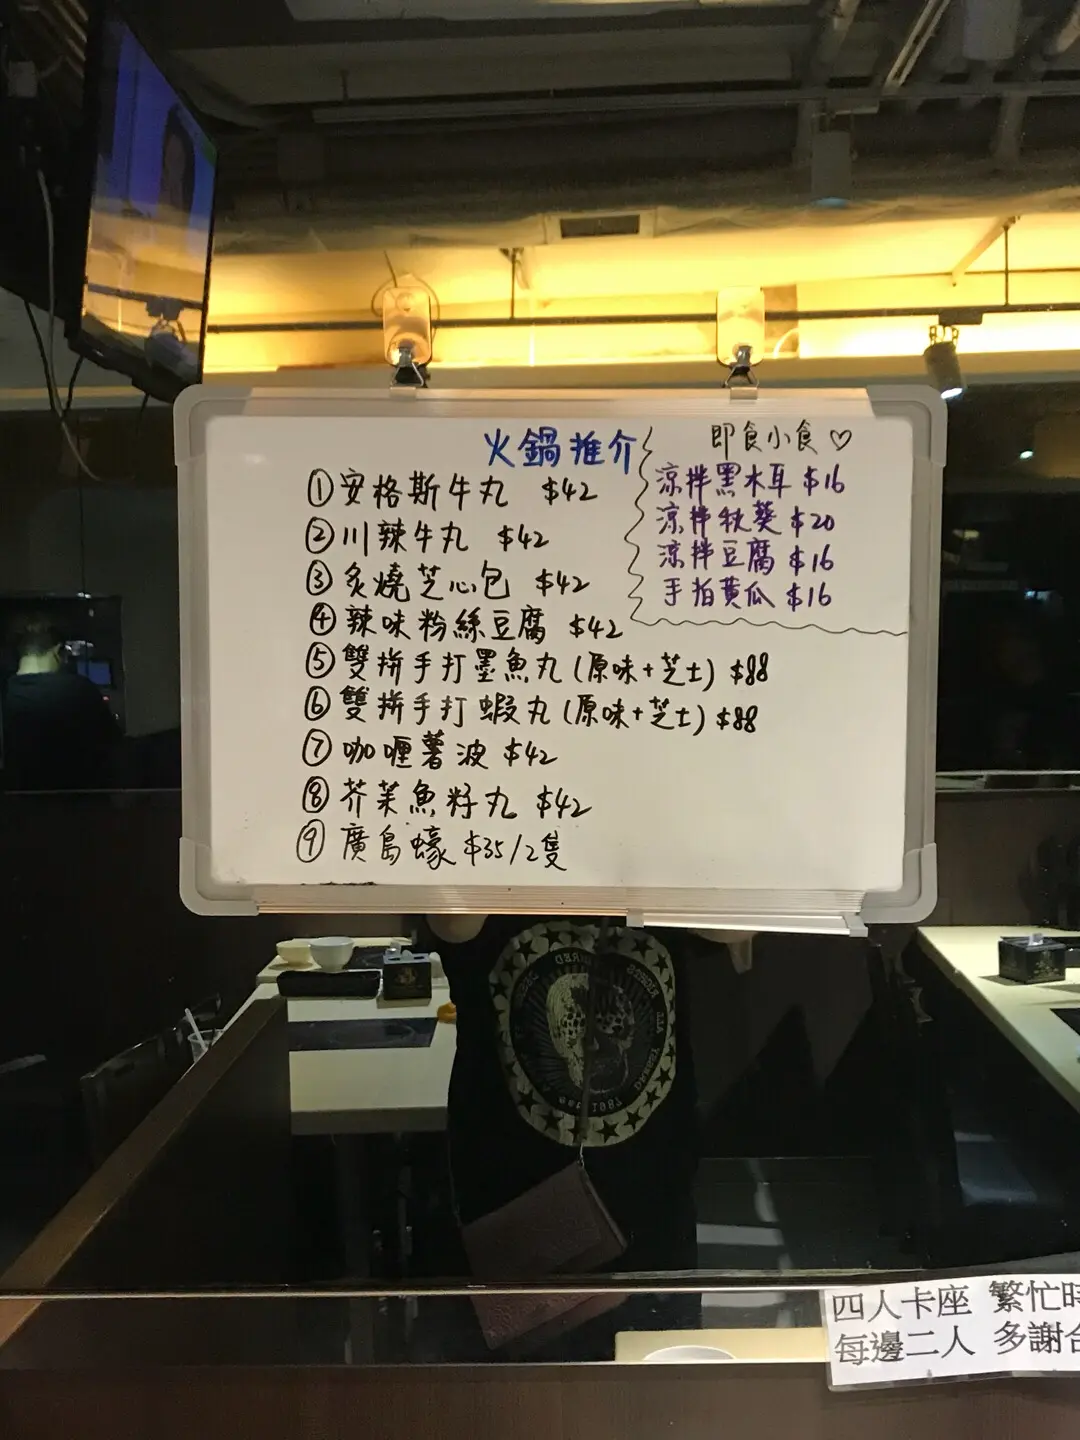 火鍋推介
①安格斯牛丸 $42
②川辣牛丸 $42
③炙燒芝心包 $42
④辣味粉絲豆腐 $42
⑤雙拼手打墨魚丸(原味+芝士) $88
⑥雙拼手打蝦丸(原味+芝士) $88
⑦咖喱薯波 $42
⑧芥茉魚籽丸 $42
⑨廣島蠔 $35/2隻
即食小食♡
涼拌黑木耳 $16
涼拌秋葵 $20
涼拌豆腐 $16
手拍黃瓜 $16
四人卡座 繁忙時
每邊二人 多謝合